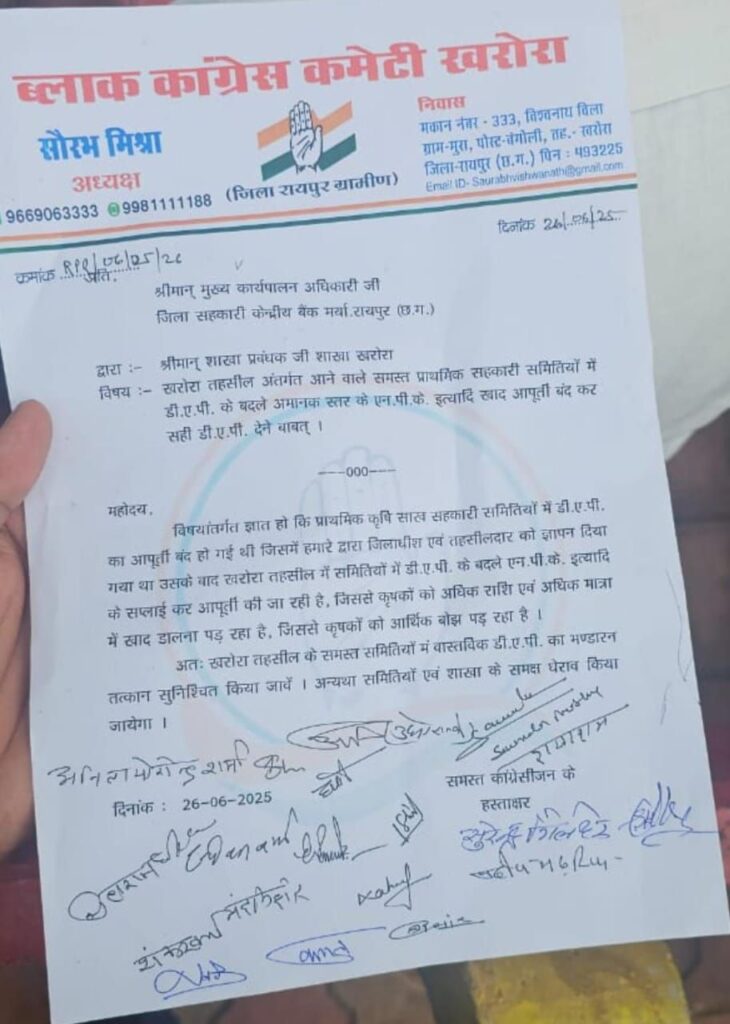 ब्लाक कांग्रेस कमेटी खरोरा
सौरभ मिश्रा
अध्यक्ष
9669063333 9981111188
(जिला रायपुर ग्रामीण)
निवास
मकान नंबर - 333, विश्वनाथ विला
ग्राम-मुरा, पोस्ट-बंगोली, तह.- खरोरा
जिला-रायपुर (छ.ग.) पिन : 493225
Email ID- Saurabhvishwanath@gmail.com
दिनांक 26/06/25
क्रमांक RPR/06/25/26
प्रति,
श्रीमान् मुख्य कार्यपालन अधिकारी जी
जिला सहकारी केन्द्रीय बैंक मर्या.रायपुर (छ.ग.)
द्वारा :- श्रीमान् शाखा प्रवंधक जी शाखा खरोरा
विषय :- खरोरा तहसील अंतर्गत आने वाले समस्त प्राथमिक सहकारी समितियों में
डी.ए.पी. के बदले अमानक स्तर के एन.पी.के. इत्यादि खाद आपूर्ती बंद कर
सही डी.ए.पी. देने बाबत् ।
----000----
महोदय,
विषयांतर्गत ज्ञात हो कि प्राथमिक कृषि साख सहकारी समितियों में डी.ए.पी.
का आपूर्ती बंद हो गई थी जिसमें हमारे द्वारा जिलाधीश एवं तहसीलदार को ज्ञापन दिया
गया था उसके बाद खरोरा तहसील में समितियों में डी.ए.पी. के बदले एन.पी.के. इत्यादि
के सप्लाई कर आपूर्ती की जा रही है, जिससे कृषकों को अधिक राशि एवं अधिक मात्रा
में खाद डालना पड़ रहा है, जिससे कृषकों को आर्थिक बोझ पड़ रहा है ।
अतः खरोरा तहसील के समस्त समितियों मं वास्तविक डी.ए.पी. का भण्डारन
तत्कान सुनिश्चित किया जावें । अन्यथा समितियों एवं शाखा के समक्ष घेराव किया
जायेगा ।
शर्मा
दिनांक : 26-06-2025
समस्त कांग्रेसीजन के
हस्ताक्षर